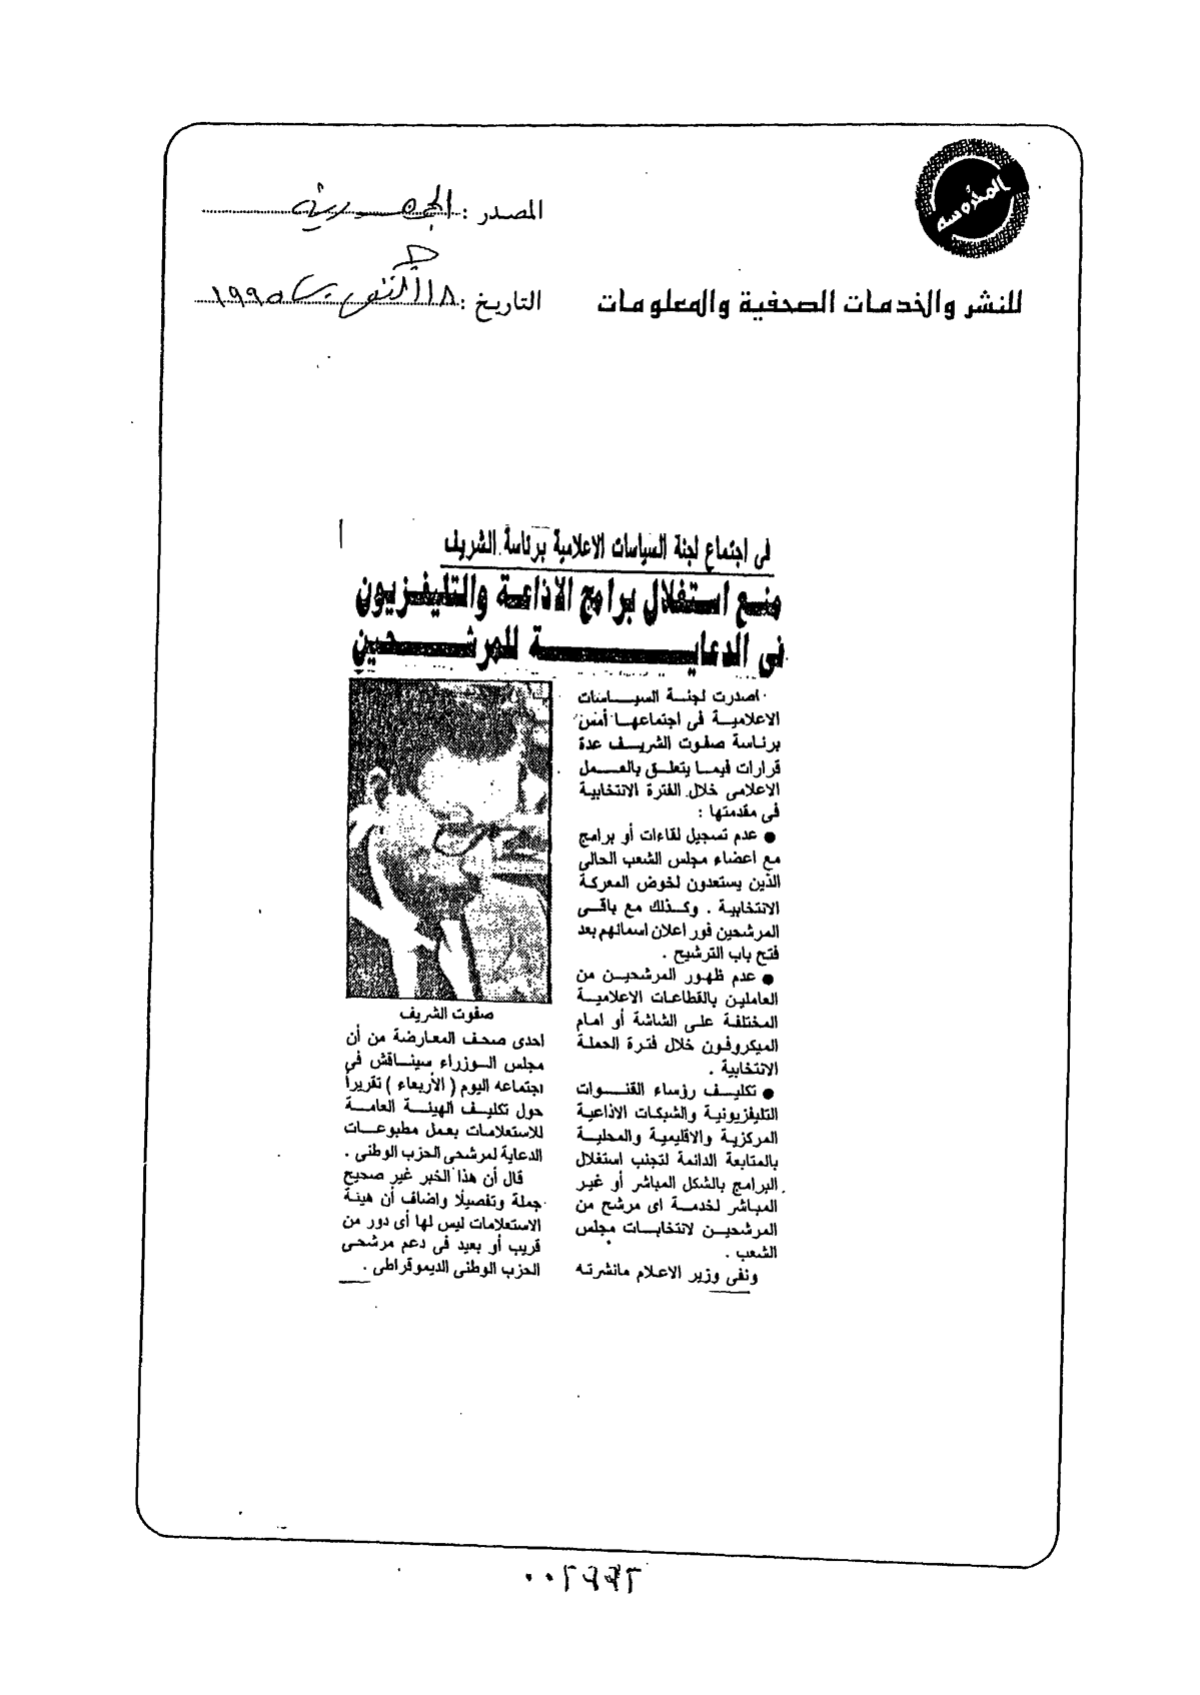 المحروسة
المصدر : الجمهورية
للنشر والخدمات الصحفية والمعلومات
التاريخ : ١٨ أكتوبر ١٩٩٥
فى اجتماع لجنة السياسات الاعلامية برئاسة الشريف
منع استغلال برامج الاذاعة والتليفزيون
فى الدعاية للمرشحين
اصدرت لجنة السياسات
الاعلامية فى اجتماعها أمس
برئاسة صفوت الشريف عدة
قرارات فيما يتعلق بالعمل
الاعلامى خلال الفترة الانتخابية
فى مقدمتها :
● عدم تسجيل لقاءات أو برامج
مع اعضاء مجلس الشعب الحالى
الذين يستعدون لخوض المعركة
الانتخابية . وكذلك مع باقى
المرشحين فور اعلان اسمائهم بعد
فتح باب الترشيح .
● عدم ظهور المرشحين من
العاملين بالقطاعات الاعلامية
المختلفة على الشاشة أو امام
الميكروفون خلال فترة الحملة
الانتخابية .
● تكليف رؤساء القنوات
التليفزيونية والشبكات الاذاعية
المركزية والاقليمية والمحلية
بالمتابعة الدائمة لتجنب استغلال
البرامج بالشكل المباشر أو غير
المباشر لخدمة اى مرشح من
المرشحين لانتخابات مجلس
الشعب .
ونفى وزير الاعلام مانشرته
صفوت الشريف
احدى صحف المعارضة من أن
مجلس الوزراء سيناقش فى
اجتماعه اليوم ( الأربعاء ) تقريراً
حول تكليف الهيئة العامة
للاستعلامات بعمل مطبوعات
الدعاية لمرشحى الحزب الوطنى .
قال أن هذا الخبر غير صحيح
جملة وتفصيلا واضاف أن هيئة
الاستعلامات ليس لها أى دور من
قريب أو بعيد فى دعم مرشحى
الحزب الوطنى الديموقراطى .